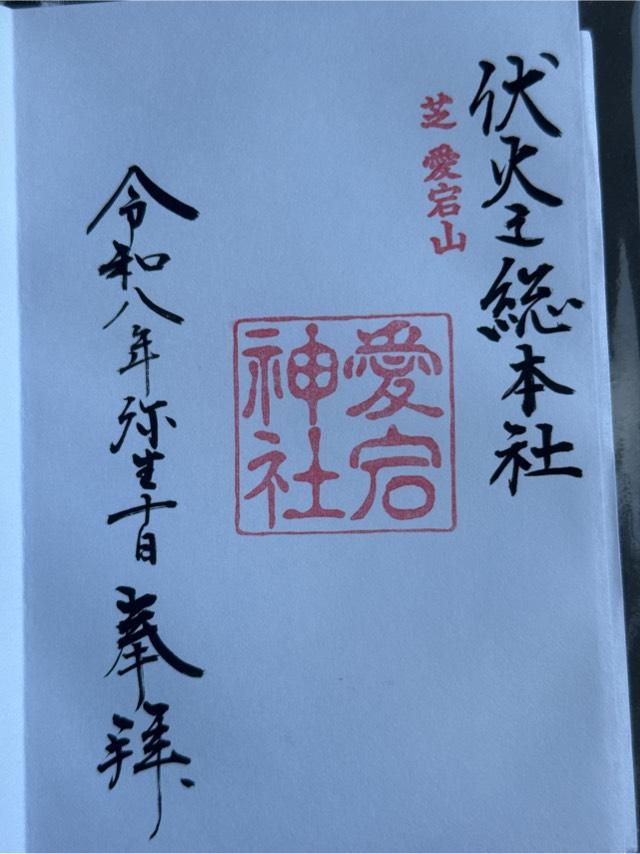 伏火之総本社
芝 愛宕山
愛宕
神社
令和八年弥生十日 奉拝